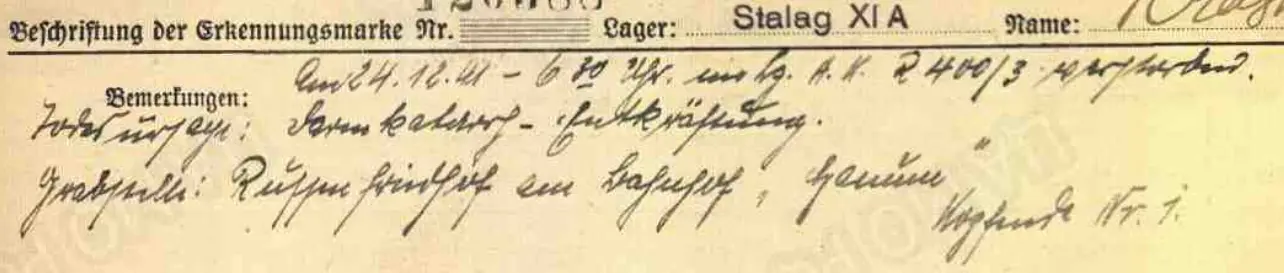 Beschriftung der Erkennungsmarke Nr. Lager: Stalag XI A Name:
Bemerkungen: Am 24.12.41 - 6 30 Uhr. im A. K. R 400/3 verstorben.
Todesursache: Darmkatarrh - Entkräftung.
Grabstelle: Russenfriedhof am Bahnhof "Hanum"
Kopfende Nr. 1.